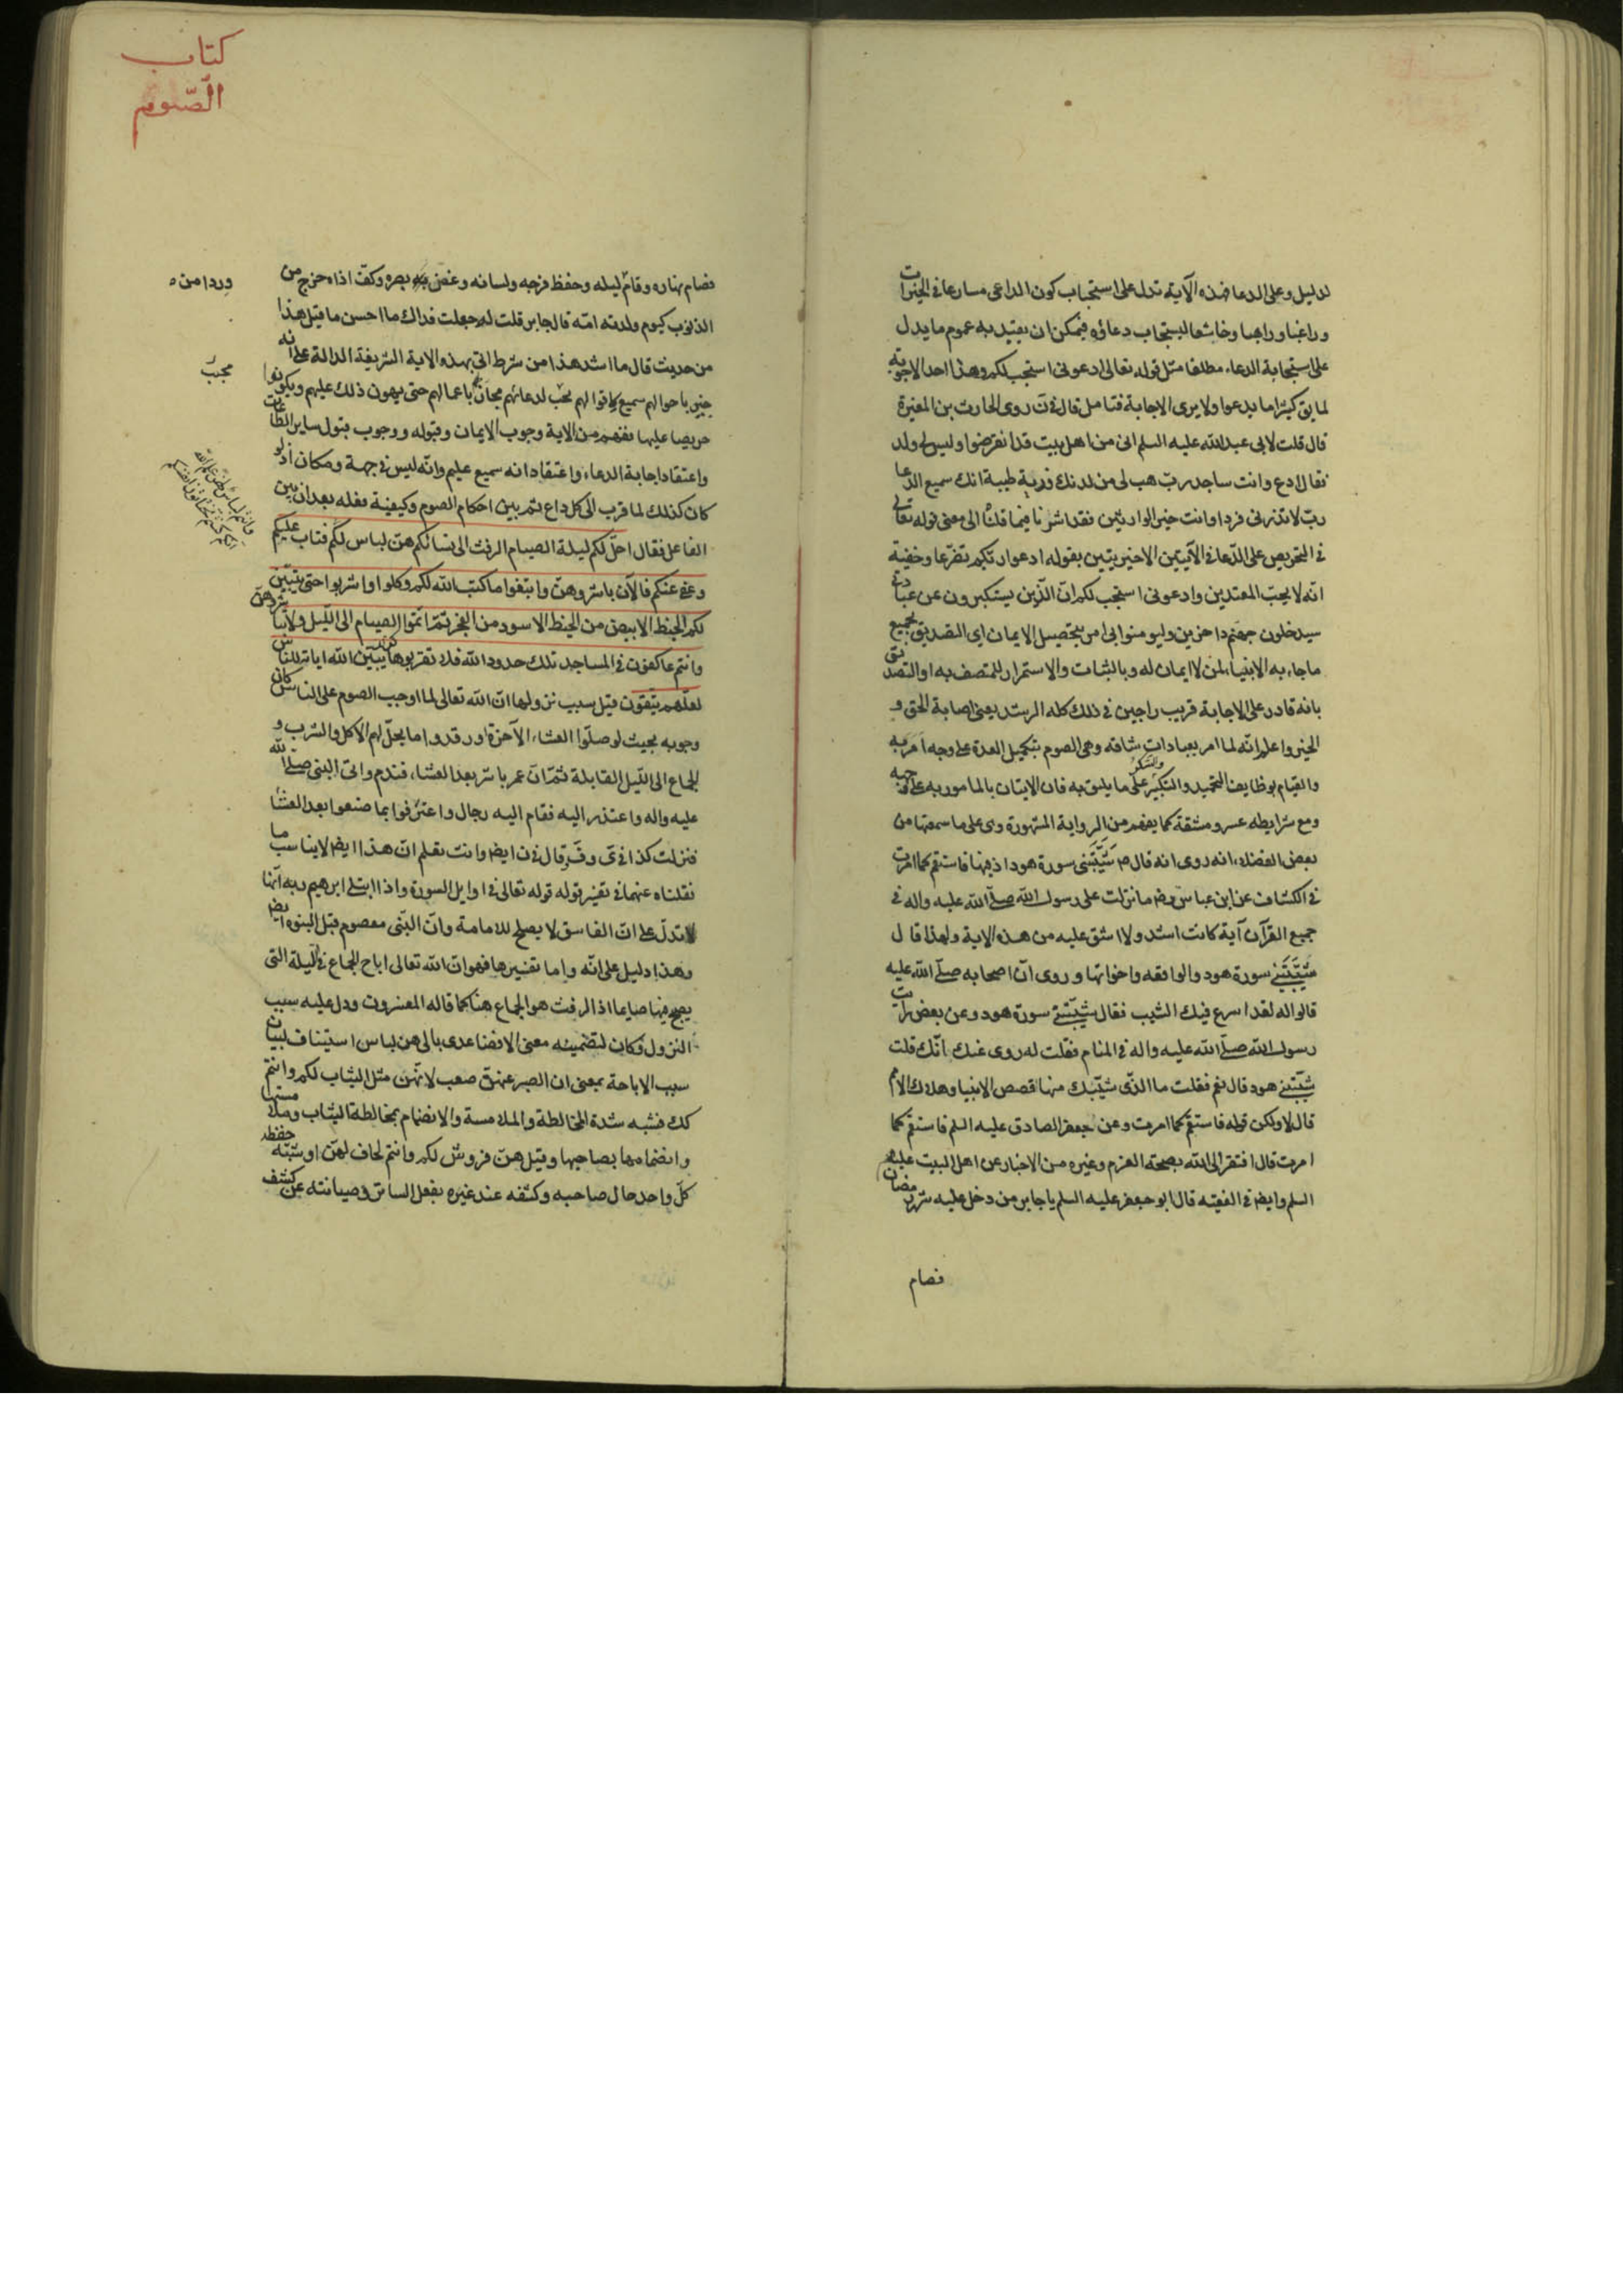 لدليل وعلى الدعا فهذه الآية تدل على استحباب كون الداعى مسارعا فى الخيرات
وراغبا وراهبا وخاشعا ليستجاب دعاؤه فيمكن ان يقيد به عموم ما يدل
على استجابة الدعاء مطلقا مثل قوله تعالى ادعونى استجب لكم وهذا احد الاجوبة
لما يق كثيرا ما يدعوا ولا يرى الاجابة فتامل قال فى ن روى الحارث بن المغيرة
قال قلت لابى عبدالله عليه السلم انى من اهل بيت قد انقرضوا وليس لى ولد
فقال ادع وانت ساجد رب هب لى من لدنك ذرية طيبة انك سميع الدعا
رب لا تذرنى فردا وانت خير الوارثين فقد اشرنا فيما قلنا الى معنى قوله تعالى
فى التحريص على الدعا فى الآيتين الاخيرتين بقوله ادعوا ربكم تضرعا وخفية
انه لا يحب المعتدين وادعونى استجب لكم ان الذين يستكبرون عن عبادتى
سيدخلون جهنم داخرين وليومنوا بى امر بتحصيل الايمان اى التصديق بجميع
ما جاء به الانبياء لمن لا ايمان له وبالثبات والاستمرار للمتصف به او التصديق
بانه قادر على الاجابة قريب راجين فى ذلك كله الرشد يعنى اصابة الحق و
الخير واعلم انه لما امر بعبادات شاقه وهى الصوم بتكميل العدة على وجه امر به
والقيام بوظايف التحميد والتكبير والشكر على ما يليق به فان الاتيان بالمامور به على وجهه
ومع شرايطه عسر ومشقة كما يفهم من الرواية المشهورة وى على ما سمعتها من
بعض الفضلاء انه روى انه قال ص شَيَّبَتنى سورة هود اذ فيها فاستقم كما امرت
فى الكشاف عن ابن عباس رض ما نزلت على رسول الله صلى الله عليه واله فى
جميع القرآن آية كانت اشد ولا اشق عليه من هذه الاية ولهذا قال
شَيَّبَتَنى سورة هود والواقعه واخواتها وروى ان اصحابه صلى الله عليه
قالوا له لقد اسرع فيك الشيب فقال شيّبتنى سورة هود وعن بعض رايت
رسول الله صلى الله عليه واله فى المنام فقلت له روى عنك انك قلت
شيّبتنى هود قال نعم فقلت ما الذى شيّبك منها قصص الانبيا وهلاك الامم
قال لا ولكن قوله فاستقم كما امرت وعن جعفر الصادق عليه السلم فاستقم كما
امرت قال افتقر الى الله بصحته العزم وغيره من الاخبار عن اهل البيت عليهم
السلم وايض فى الفقيه قال ابو جعفر عليه السلم يا جابر من دخل عليه شهر رمضان
فصام
كتاب
الصّوم
فصام نهاره وقام ليله وحفظ فرجه ولسانه وغض بصره وكف اذاه خرج من
وردا من ه
الذنوب كيوم ولدته امّه قال جابر قلت له جعلت فداك ما احسن ما قيل هذا
من حديث قال ما اشد هذا من شرط اتى بهذه الاية الشريفة الدالة على انه
مجيب
خبير باحوالهم سميع لاقوالهم لدعائهم باعمالهم حتى يهون ذلك عليهم ويكونوا
حريصا عليها يفهم من الاية وجوب الايمان وقبوله ووجوب قبول ساير الطاعات
واعتقاد اجابة الدعاء واعتقاد انه سميع عليم وانّه ليس فى جهة ومكان اذ لو
كان كذلك لما قرب الى كل داع ثم بين احكام الصوم وكيفية فعله بعد ان بين
الفاعل فقال احلّ لكم ليلة الصيام الرفث الى نسائكم هنّ لباس لكم فتاب عليكم
وعفى عنكم فالآن باشروهن وابتغوا ما كتب الله لكم وكلوا واشربوا حتى يتبيّن
لكم الخيط الابيض من الخيط الاسود من الفجر ثمّ اتمّوا الصيام الى الليل ولا تباشروهنّ
وانتم عاكفون فى المساجد تلك حدود الله فلا تقربوها كذلك يبيّن الله اياته للناس
لعلّهم يتّقون قيل سبب نزولها ان الله تعالى لما اوجب الصوم على الناس كان
وجوبه بحيث لو صلّوا العشاء الآخرة او رقدوا ما يحل لهم الاكل والشرب و
الجماع الى الليل القابلة ثمّ انّ عمر باشر بعد العشاء فندم واتى النبى صلى الله
عليه واله واعتذر اليه فقام اليه رجال واعترفوا بما صنعوا بعد العشا
فنزلت كذا فى ى وفَر قال فى ن ايض وانت تعلم ان هذا ايض لا يناسب ما
نقلناه عنهما فى تفسير قوله قوله تعالى فى اوايل السورة واذا ابتلى ابرهيم ربه انها
تدلّ على ان الفاسق لا يصلح للامامة وانّ النبى معصوم قبل النبوة ايض
وهذا دليل على انّه واما تفسيرها فهو ان الله تعالى اباح الجماع فى الليلة التى
يصبح فيها صايما اذ الرفث هو الجماع هنا كما قاله المفسرون ودل عليه سبب
النزول فكان لتضمينه معنى الافضا عدى بالى هن لباس استيناف لبيان
سبب الاباحة بمعنى ان الصبر عنهنّ صعب لانّهن مثل الثياب لكم وانتم
كك فشبه شدة المخالطة والملامسة والانضمام بمخالطة الثياب وملامستها
وانضمامها بصاحبها وقيل هنّ فروش لكم وانتم لحاف لهنّ او شبّه حفظ
كلّ واحد حال صاحبه وكشفه عند غيره بفعل الساتر وصيانته عن كشف